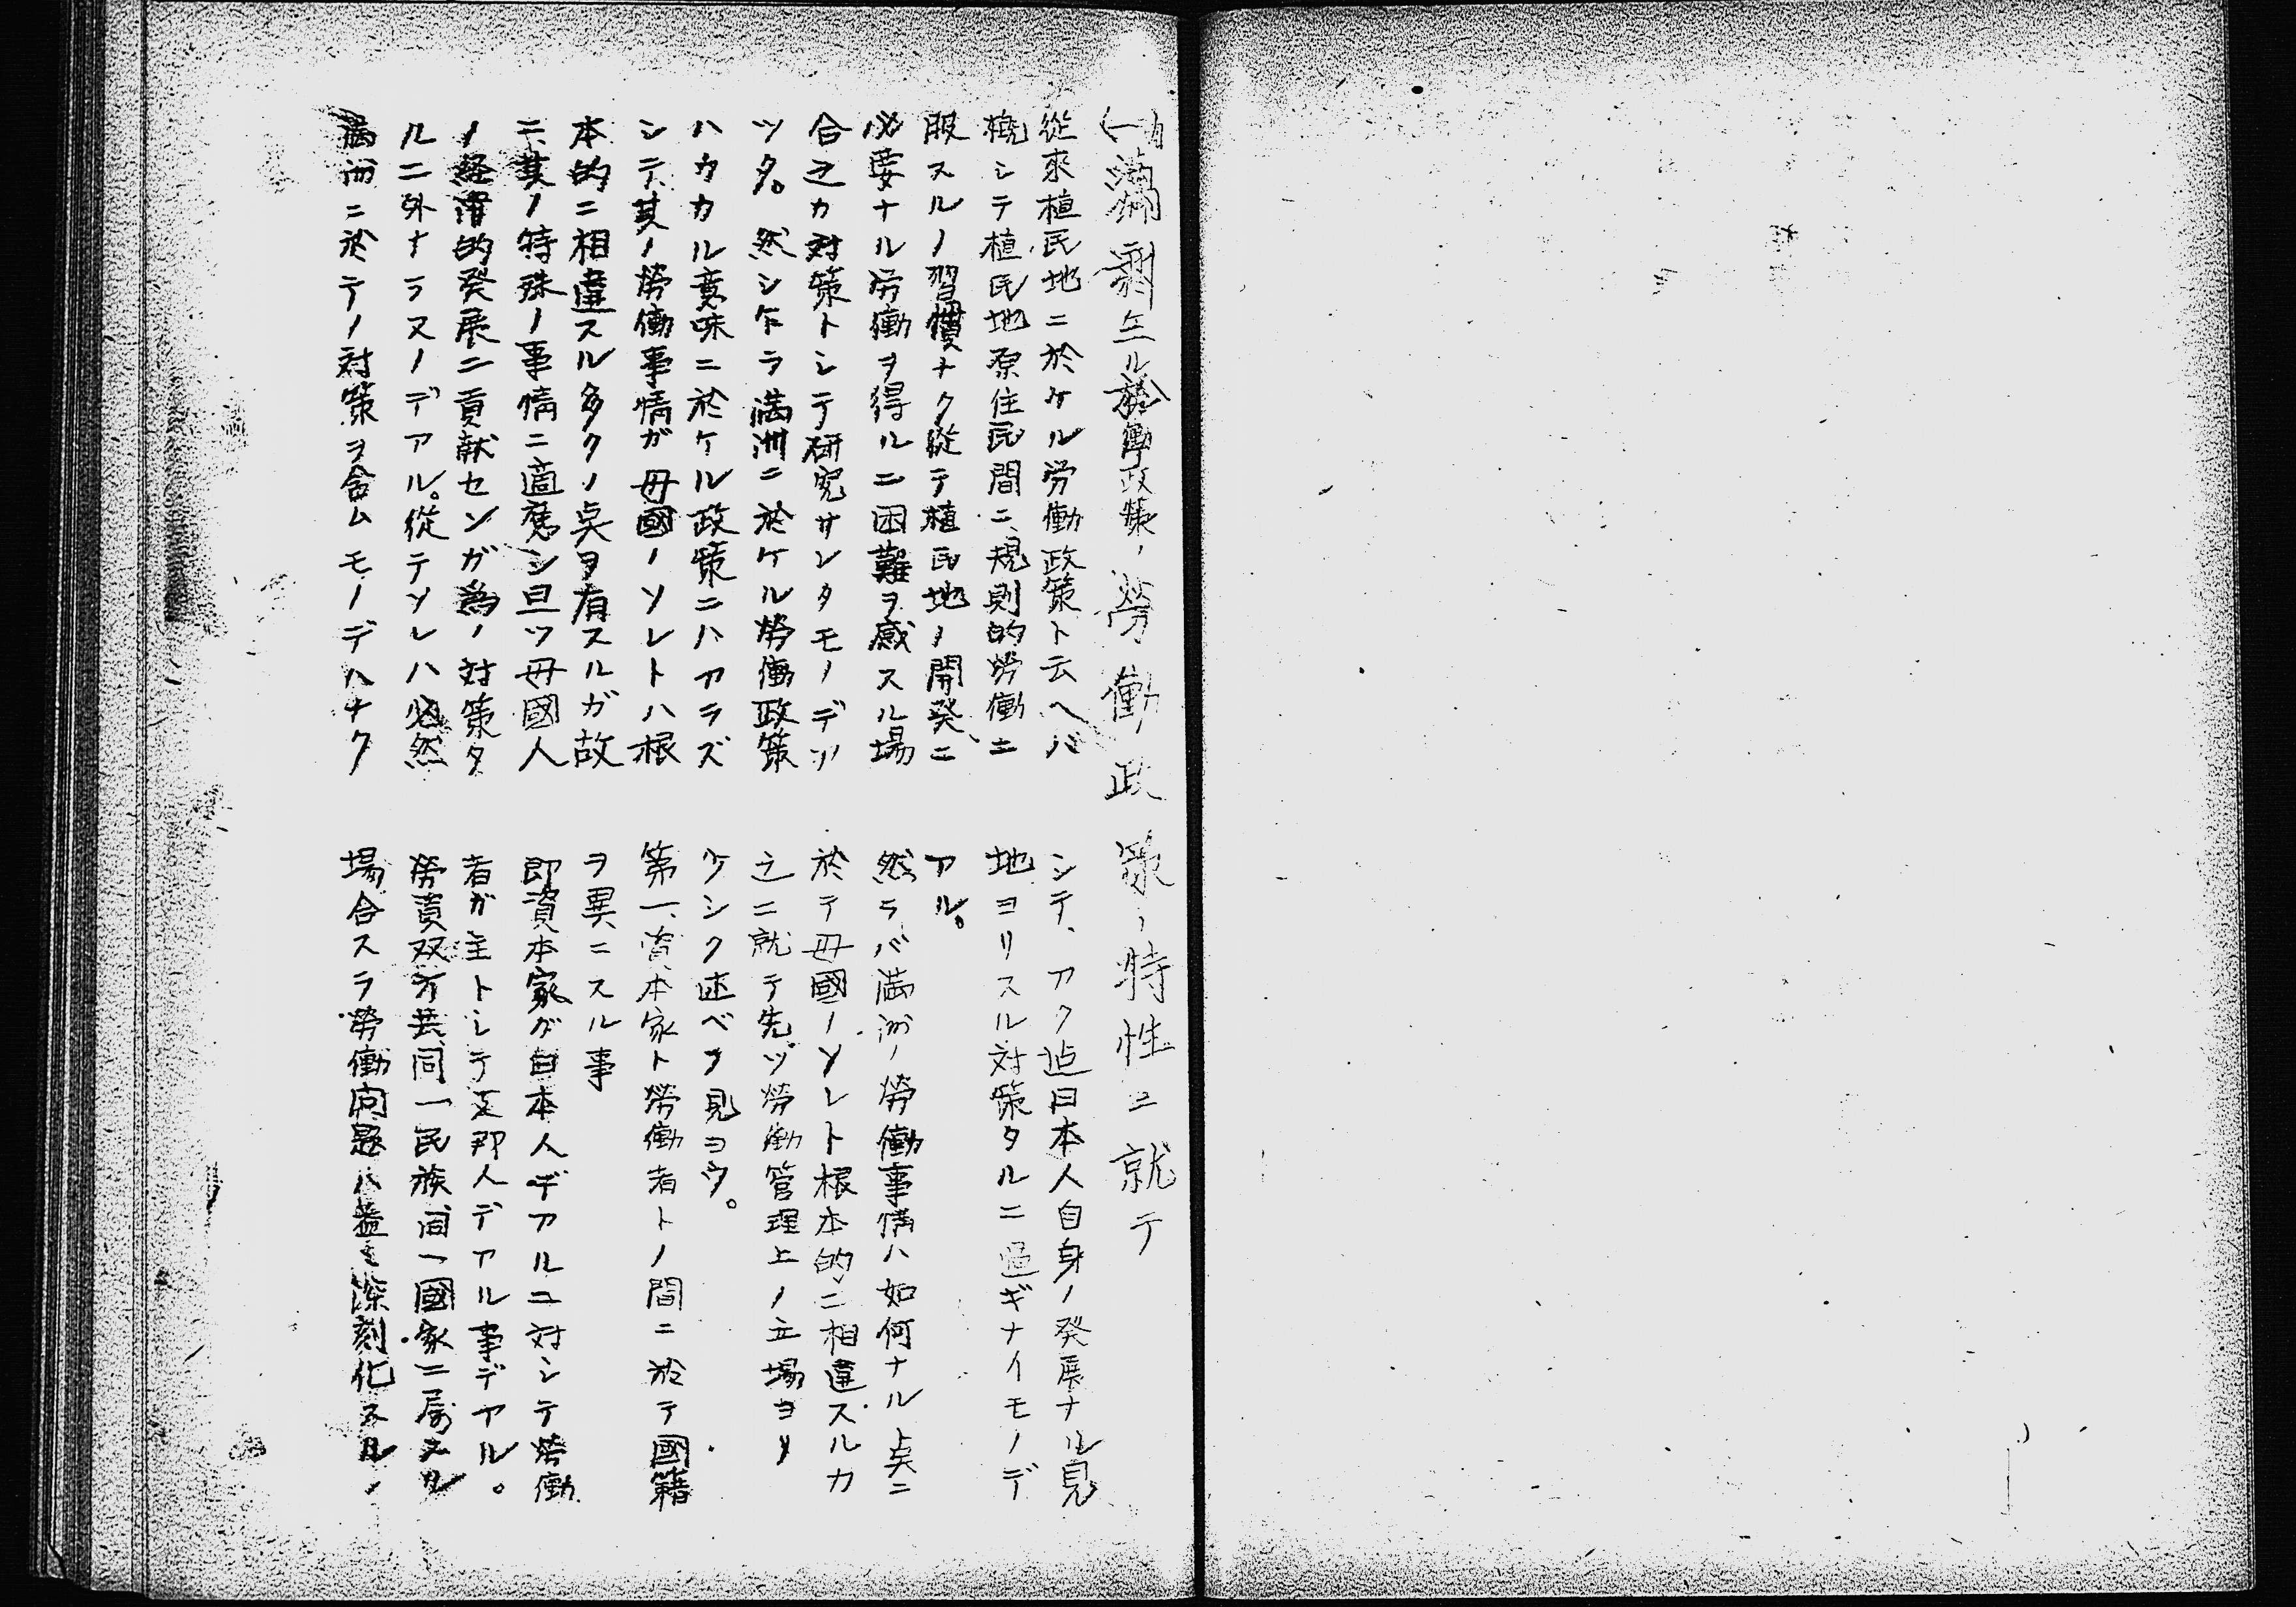 満洲ニ於ケル勞働政策ノ特性ニ就テ
從來植民地ニ於ケル労働政策ト云ヘバ
概シテ植民地原住民間ニ、規則的勞働ニ
服スルノ習慣ナク從テ植民地ノ開発ニ
必要ナル労働ヲ得ルニ困難ヲ感スル場
合之カ対策トシテ研究サレタモノデア
ツタ。然シ乍ラ満洲ニ於ケル勞働政策
ハカカル意味ニ於ケル政策ニハアラズ
シテ、其ノ勞働事情ガ母國ノソレトハ根
本的ニ相違スル多クノ点ヲ有スルガ故
ニ、其ノ特殊ノ事情ニ適應シ且ツ母國人
ノ経済的発展ニ貢献センガ為ノ対策タ
ルニ外ナラヌノデアル。從テソレハ必然
満洲ニ於テノ対策ヲ含ムモノデハナク
シテ、アク迠日本人自身ノ発展ナル見
地ヨリスル対策タルニ過ギナイモノデ
アル。
然ラバ満洲ノ勞働事情ハ如何ナル点ニ
於テ母國ノソレト根本的ニ相違スルカ
之ニ就テ先ヅ勞働管理上ノ立場ヨリ
ケシク述ベテ見ヨウ。
第一、資本家ト勞働者トノ間ニ於テ國籍
ヲ異ニスル事
即資本家ガ日本人デアルニ対シテ勞働
者ガ主トシテ支那人デアル事デアル。
勞資双方共同一民族、同一國家ニ属スル
場合スラ勞働問題ハ益々深刻化スル、